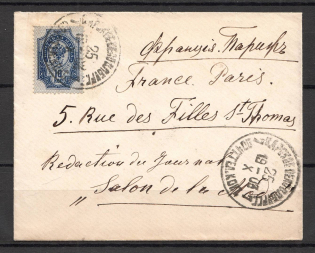 Франція. Парижъ
France. Paris.
5. Rue des Filles St Thomas
Rédaction du Journal
„Salon de la
25
25
X